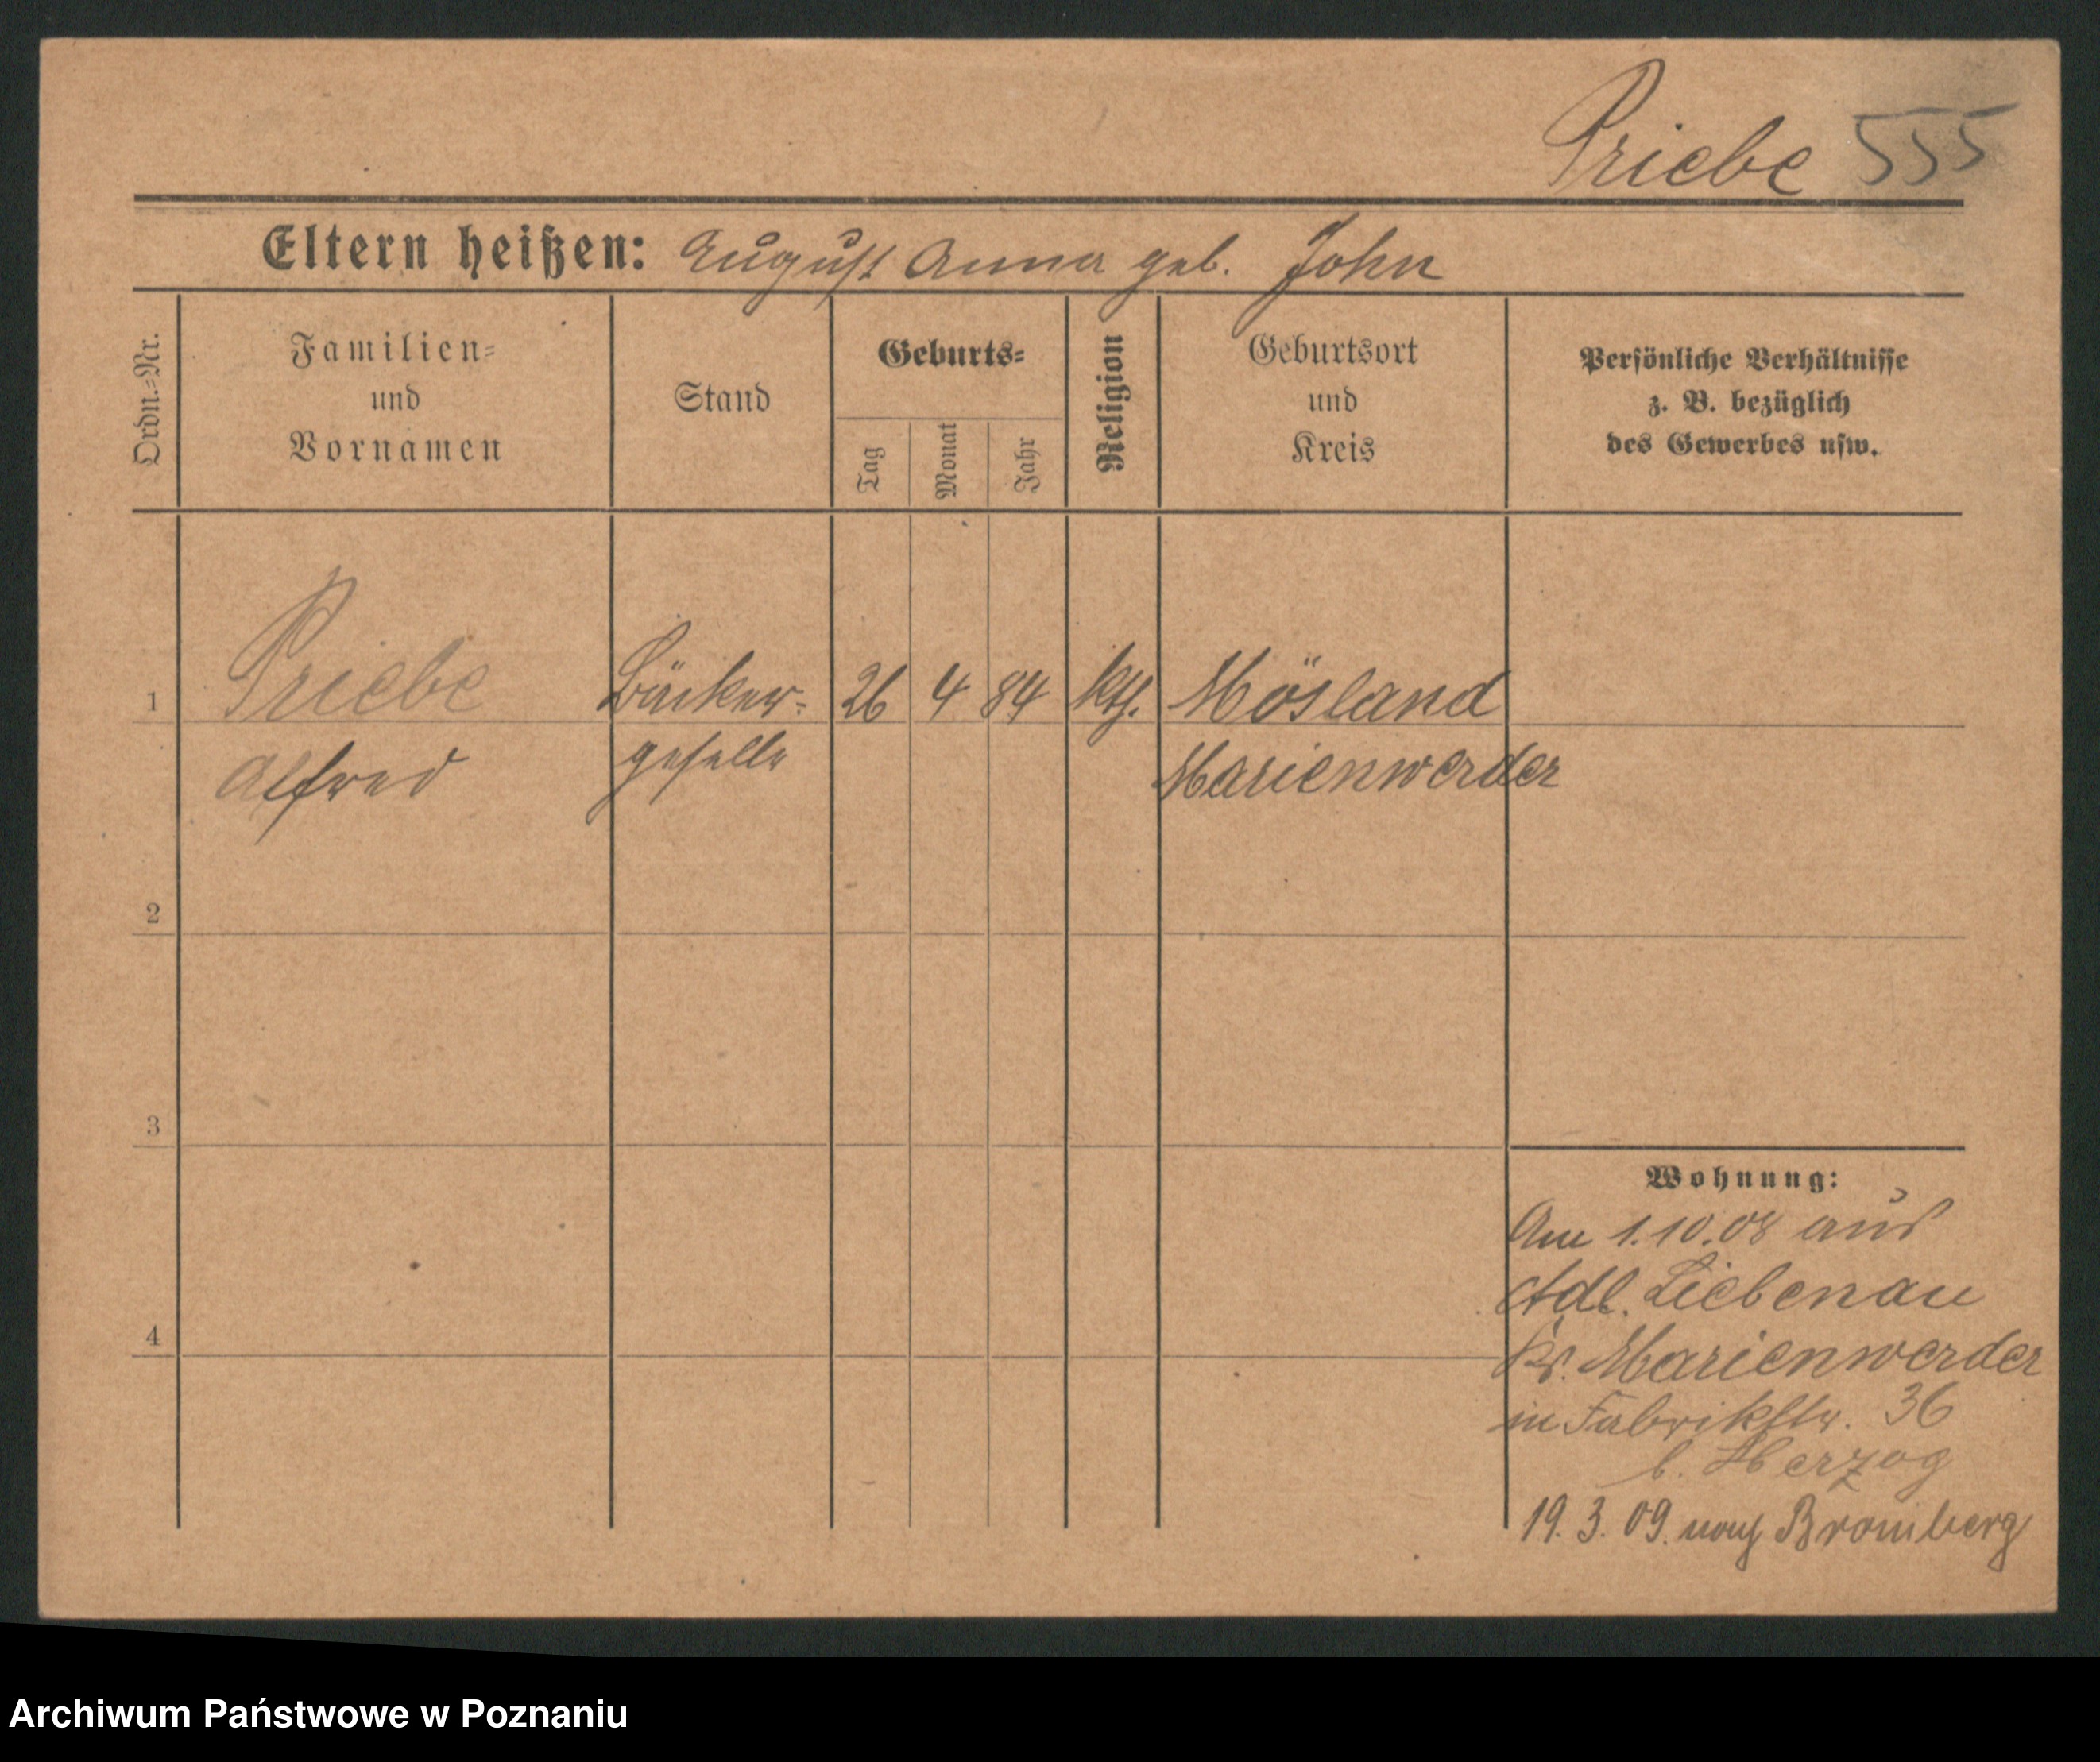 Priebe 555
Eltern heißen: August Anna geb. John
Ordn.=Nr.
Familien=
und
Vornamen
Stand
Geburts=
Tag
Monat
Jahr
Religion
Geburtsort
und
Kreis
Persönliche Verhältnisse
z. B. bezüglich
des Gewerbes usw.
1 Priebe Bäcker= 26 4 84 kth. Mösland
Alfred geselle Marienwerder
2
3
4
Wohnung:
Am 1.10.08 aus
Adl. Liebenau
Kr. Marienwerder
in Fabrikstr. 36
b. Herzog
19. 3. 09. nach Bromberg
Archiwum Państwowe w Poznaniu